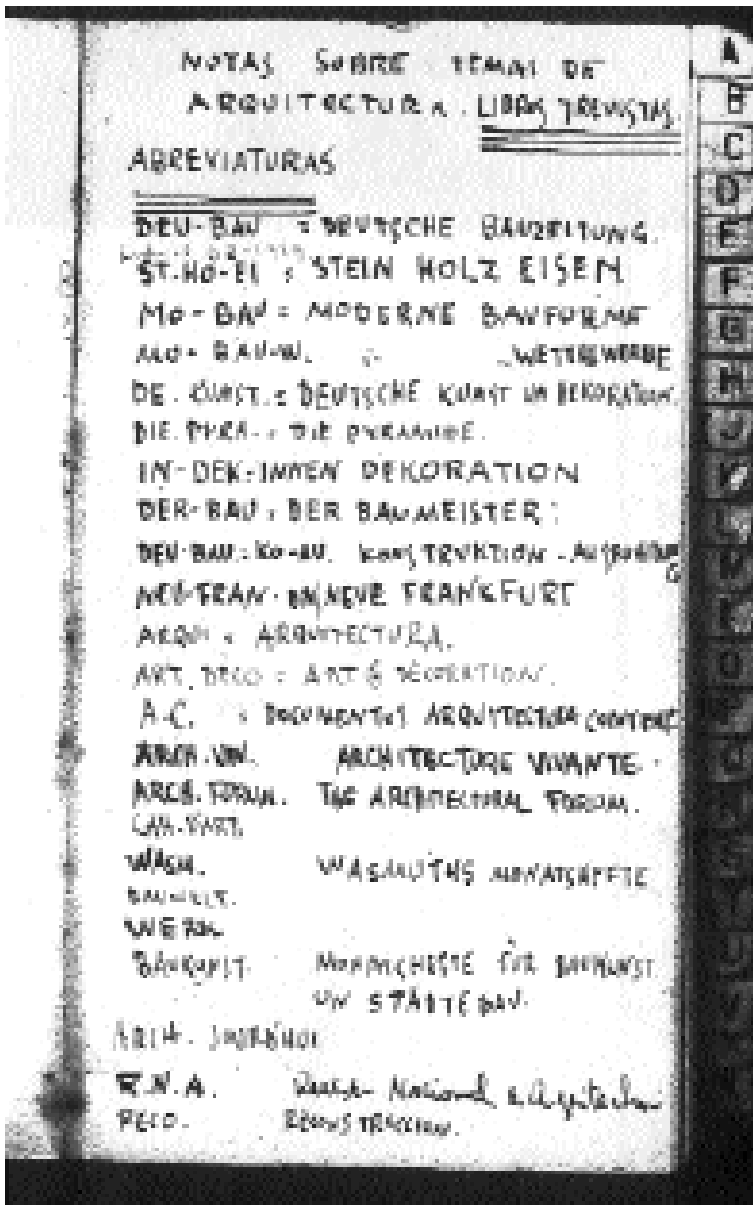 NOTAS SOBRE TEMAS DE
ARQUITECTURA. LIBROS Y REVISTAS.
ABREVIATURAS
DEU-BAU : DEUTSCHE BAUZEITUNG.
ST-HO-EI : STEIN HOLZ EISEN
MO-BAU : MODERNE BAUFORME
MO-BAU-W. WETTBEWERBE
DE. KUNST. : DEUTSCHE KUNST UN DEKORATION
DIE. PYRA. : DIE PYRAMIDE.
IN-DEK-INNEN DEKORATION
DER-BAU : DER BAUMEISTER
DEU-BAU-KO-AU. KONSTRUKTION-
NEU-FRAN- NEUE FRANKFURT
ARQUI : ARQUITECTURA.
ART. DECO : ART & DECORATION.
A.C. : DOCUMENTOS ARQUITECTURA
ARCH. VIV. ARCHITECTURE VIVANTE.
ARCH. FORUM. THE ARCHITECTURAL FORUM.
WASM. WASMUTHS MONATSHEFTE
BAUWELT.
WERK
BAUKUNST. MONATSHEFTE FÜR BAUKUNST
UN STÄDTEBAU.
ARCH.
R.N.A. Revista Nacional de Arquitectura
RECO. RECONSTRUCCION.
A
B
C
D
E
F
G
H